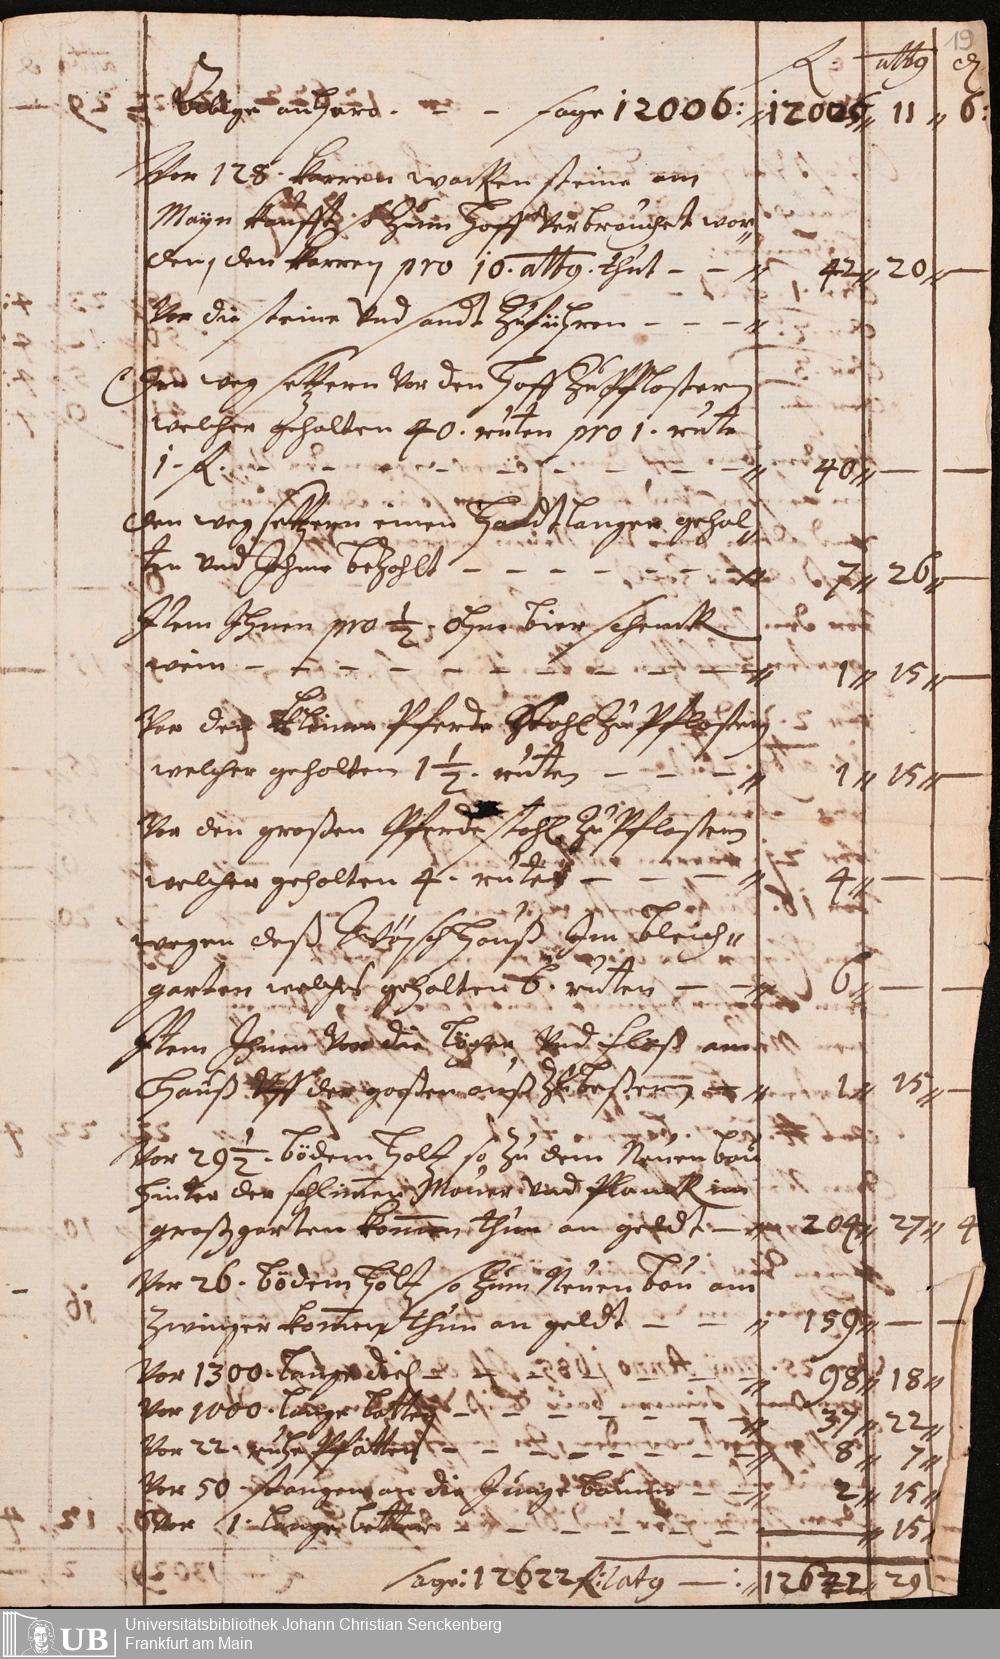 19
R. albg ₰
Vorige anhero. - - sage 12006: „ 12006 „ 11 „ 6:
Vor 128. karren wacken steine am
Mayn kaufft, so Zum Hoff verbrauchet wor„
den, den karren pro 10. albg. thut - - „ 42 „ 20 „ —
Vor die steine Vnd sandt Zuführen - - - „
Den weg setzern Vor den Hoff Zu Pflastern
welcher gehalten 40. ruten pro 1. rute
1. R. - - - - - - - - - - „ 40 „ — —
den weg setzern einen Handtlanger gehal„
ten Vnd Ihme bezahlt - - - - - - „ 7 „ 26 „ —
Item Ihnen pro ½. Ohm bier schenck
wein - - - - - - - - - - „ 1 „ 15 „ —
Vor den kleinen Pferde Stahl Zu Pflastern
welcher gehalten 1½. ruten - - - „ 1 „ 15 „ —
Vor den großen Pferde stahl Zu Pflastern
welcher gehalten 4. ruten - - - „ 4 „ — —
wegen deß Wäsch Hauß Im bleich„
garten welches gehalten 6. ruten - - „ 6 „ — —
Item Ihnen Vor die Vnd am
Hauß Vff der gaßen auß Zu beßern - „ 1 „ 15 „ —
Vor 29½. bödem Holtz so Zu dem Neuen bau
hinter der schlimen Mauer Vnd Planck im
großgarten kommen thun an geldt - „ 204 „ 27 „ 4
Vor 26. bödem Holtz so Zum Neuen bau am
Zwinger kommen thun an geldt - - „ 159 „ — —
Vor 1300. lange diel - - - - - - „ 98 „ 18 „
Vor 1000. lange latten - - - - - - „ 37 „ 22 „
Vor 22. - - - - - - „ 8 „ 7 „
Vor 50. stangen an die Junge bäume - - „ 2 „ 15 „
Vor 1. lange - - - - - - „ — „ 15 „
sage: 12622 R: albg — : „ 12622 „ 29
UB
Universitätsbibliothek Johann Christian Senckenberg
Frankfurt am Main